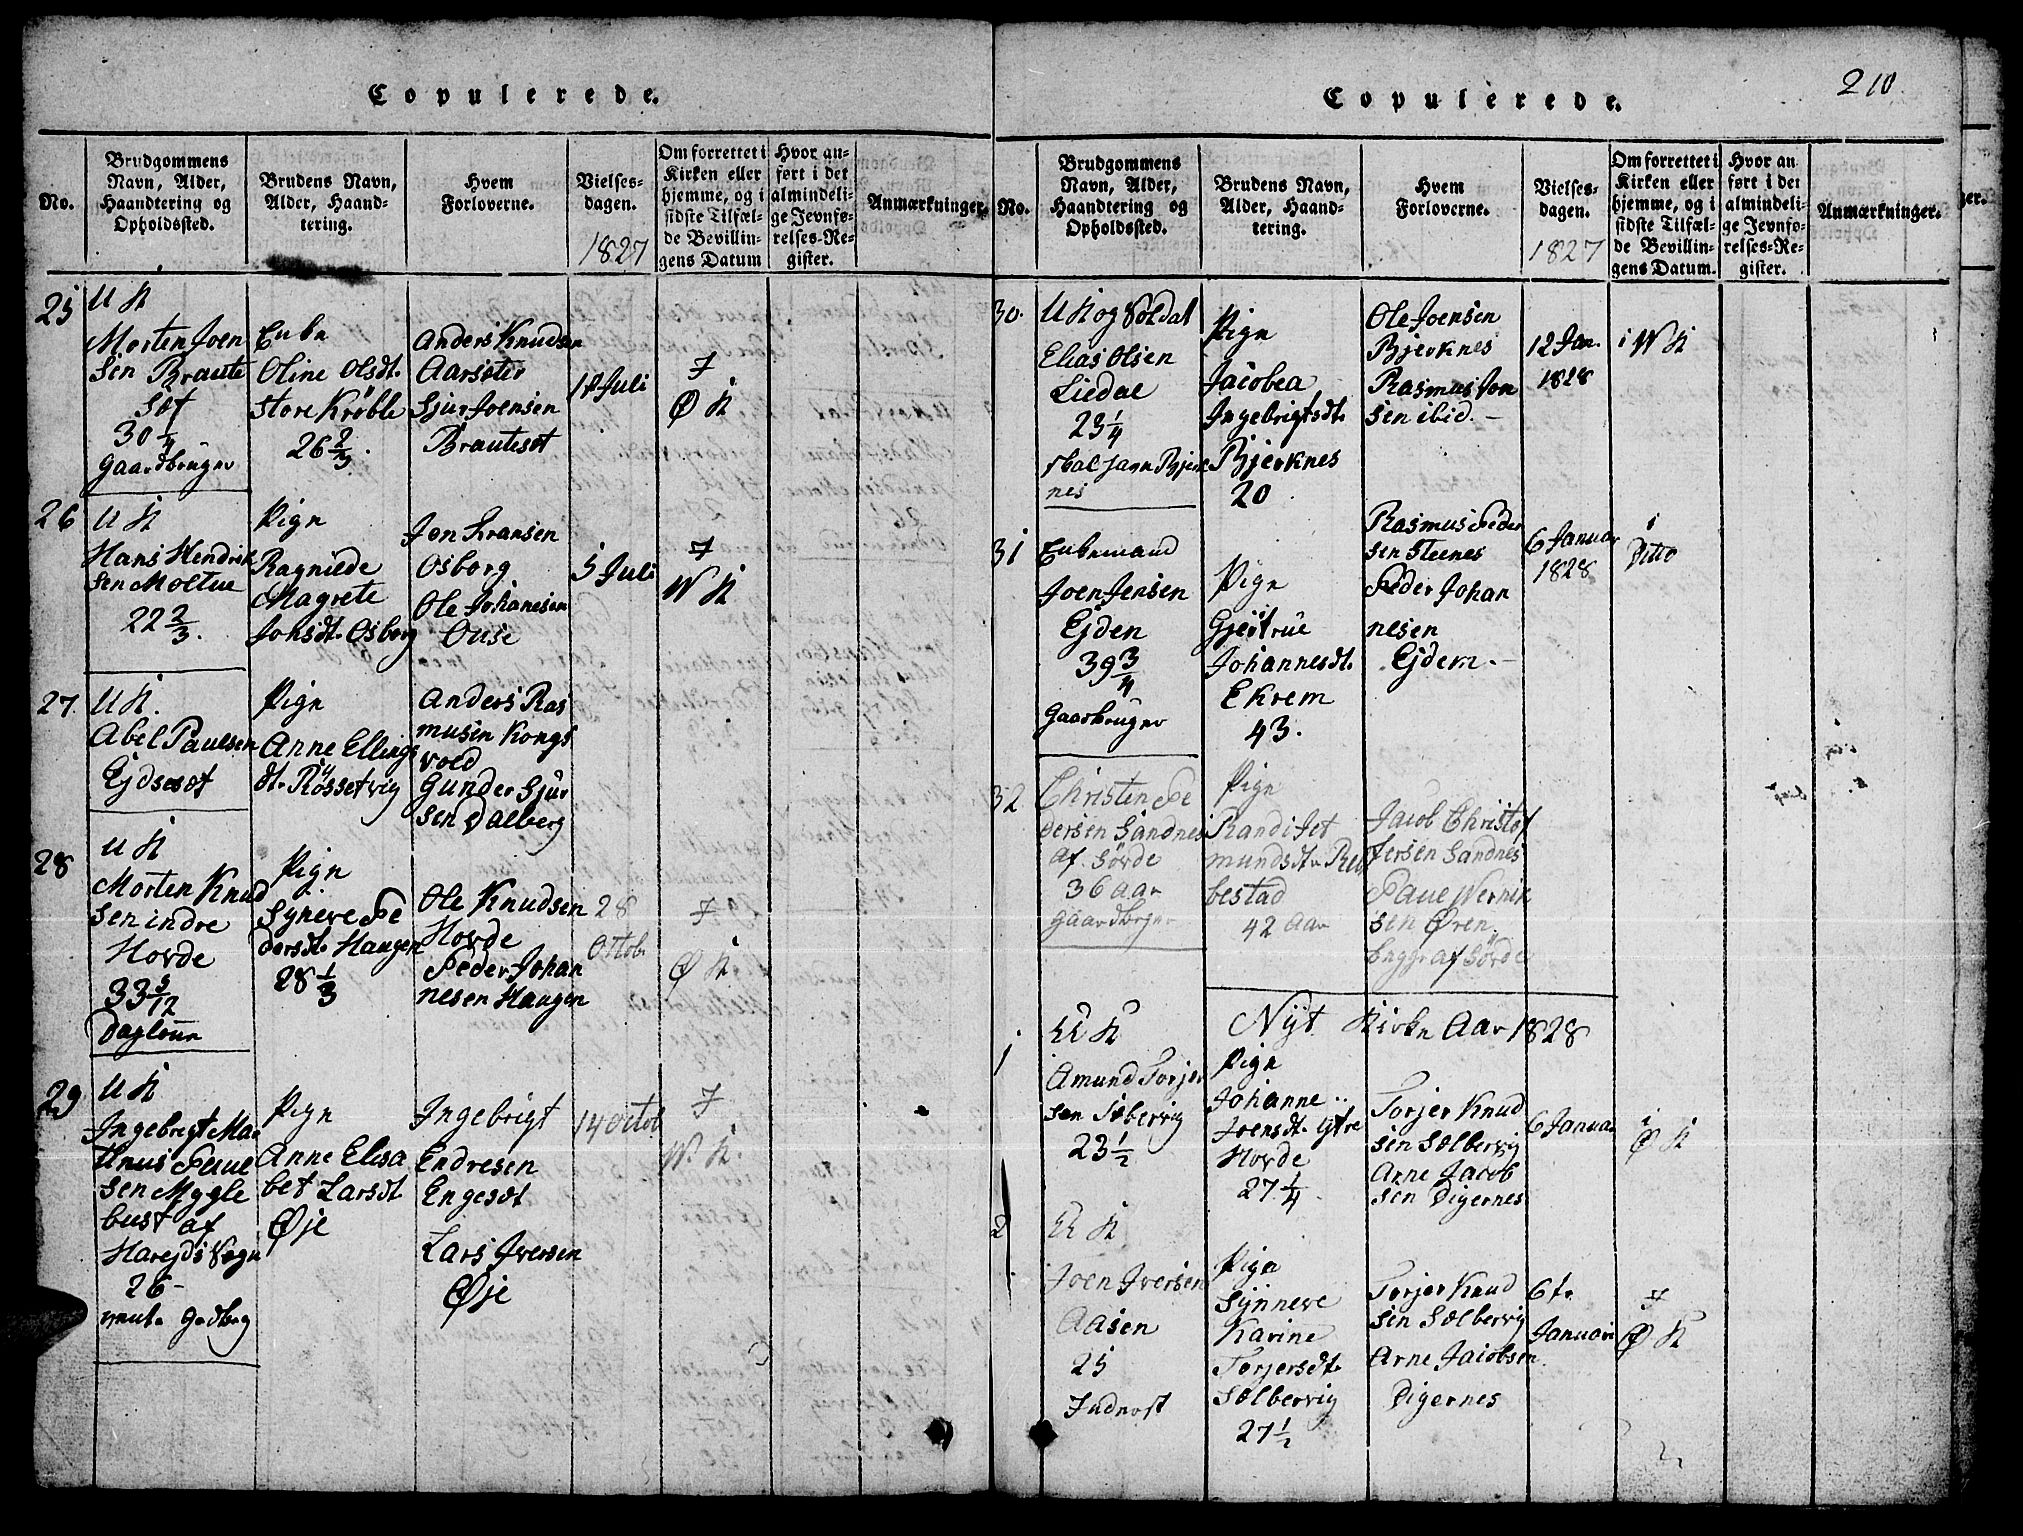 Copulerede.
No.
Brudgommens
Navn, Alder,
Haandtering og
Opholdssted.
Brudens Navn,
Alder, Haand-
tering.
Hvem
Forloverne.
Vielses-
dagen.
1827
Om forrettet i
Kirken eller
hjemme, og i
sidste Tilfæl-
de Bevillin-
gens Datum
Hvor an-
ført i det
almindeli-
ge Jevnfø-
relses-Re-
gister.
Anmærkninger.
25
U K
Morten Joen
sen Braute
set
30 1/4
Gaardbruger
Enke
Oline Olsdt.
store Krøble
26 2/3.
Anders Knudsen
Aarsæter
Sjur Joensen
Brauteset
Juli
I
Ø K
26
U K
Hans Hendrik
sen Moltue
22 2/3.
Pige
Ragnilde
Magrete
Johsdt. Osborg
Jon Larsen
Osborg
Ole Johanesen
Ouse
5 Juli
I
W K
27.
U K.
Abel Paulsen
Ejdseset
Pige
Anne Ellings
dt. Røssetvig
Anders Ras
musen Kongs
vold
Gunder Sjur
sen Dalberg
28
U K
Morten Knud
sen indre
Hovde
33 5/12
Daglønn
Pige
Syneve Pe
dersdt. Haugen
28 1/3
Ole Knudsen
Hovde
Peder Johan
nesen Haugen
28
Ottob.
I
Ø K
29
U K
Ingebrigt Ma
thus Peue
sen Mykle
bust af
Harejds Sogn
26 -
Pige
Anne Elisa
bet Larsdt
Øje
Ingebrigt
Endresen
Engesdt
Lars Iversen
Øje
14 Octob
I
W. K.
Copulerede.
210.
No.
Brudgommens
Navn, Alder,
Haandtering og
Opholdssted.
Brudens Navn,
Alder, Haand-
tering.
Hvem
Forloverne.
Vielses-
dagen.
1827
Om forrettet i
Kirken eller
hjemme, og i
sidste Tilfæl-
de Bevillin-
gens Datum.
Hvor an
ført i det
almindeli-
ge Jevnfø-
relses-Re-
gister.
Anmærkninger.
30.
U K og Soldat
Elias Olsen
Liedal
23 1/4
skal have Bjerk
nes
Pige
Jacobea
Ingebrigtsdt.
Bjerknes
20
Ole Joensen
Bjerknes
Rasmus Jon
sen ibid. -
12 Jan.
1828
i W K
31
Enkemand
Joen Jensen
Ejden
39 3/4
Gaarbruger
Pige
Gjertrue
Johannesdt.
Ekrem
43.
Rasmus Peder
sen Steenes
Peder Johan
nesen
Ejdem. -
6 Januar
1828
i
Ditto
32
Christen Pe
dersen Sandnes
af Sørde
36 Aar
Gaardbrger
Pige
Randi Jet
mundsdt. Reb
bestad
42 Aar
Jacob Christof
fersen Sandnes
Paul Wernik
sen Øren
begge af Sørde
Nyt Kirke Aar 1828
1
U K
Amund Torjer
sen Solbervig
23 1/2
Pige
Johanne
Joensdt. Ytre
Hovde
27 1/4.
Torjer Knud
sen Solbervig
Arne Jacob
sen Digernes
6 Januar
i
Ø K
2
U K
Joen Iversen
Aasen
25
Inderst
Pige
Synneve
Karine
Torjersdt.
Solbervig
27 1/2
Torjer Knud
sen Solbervig
Arne Jacobsen
Digernes
6te
Januari
I
Ø K